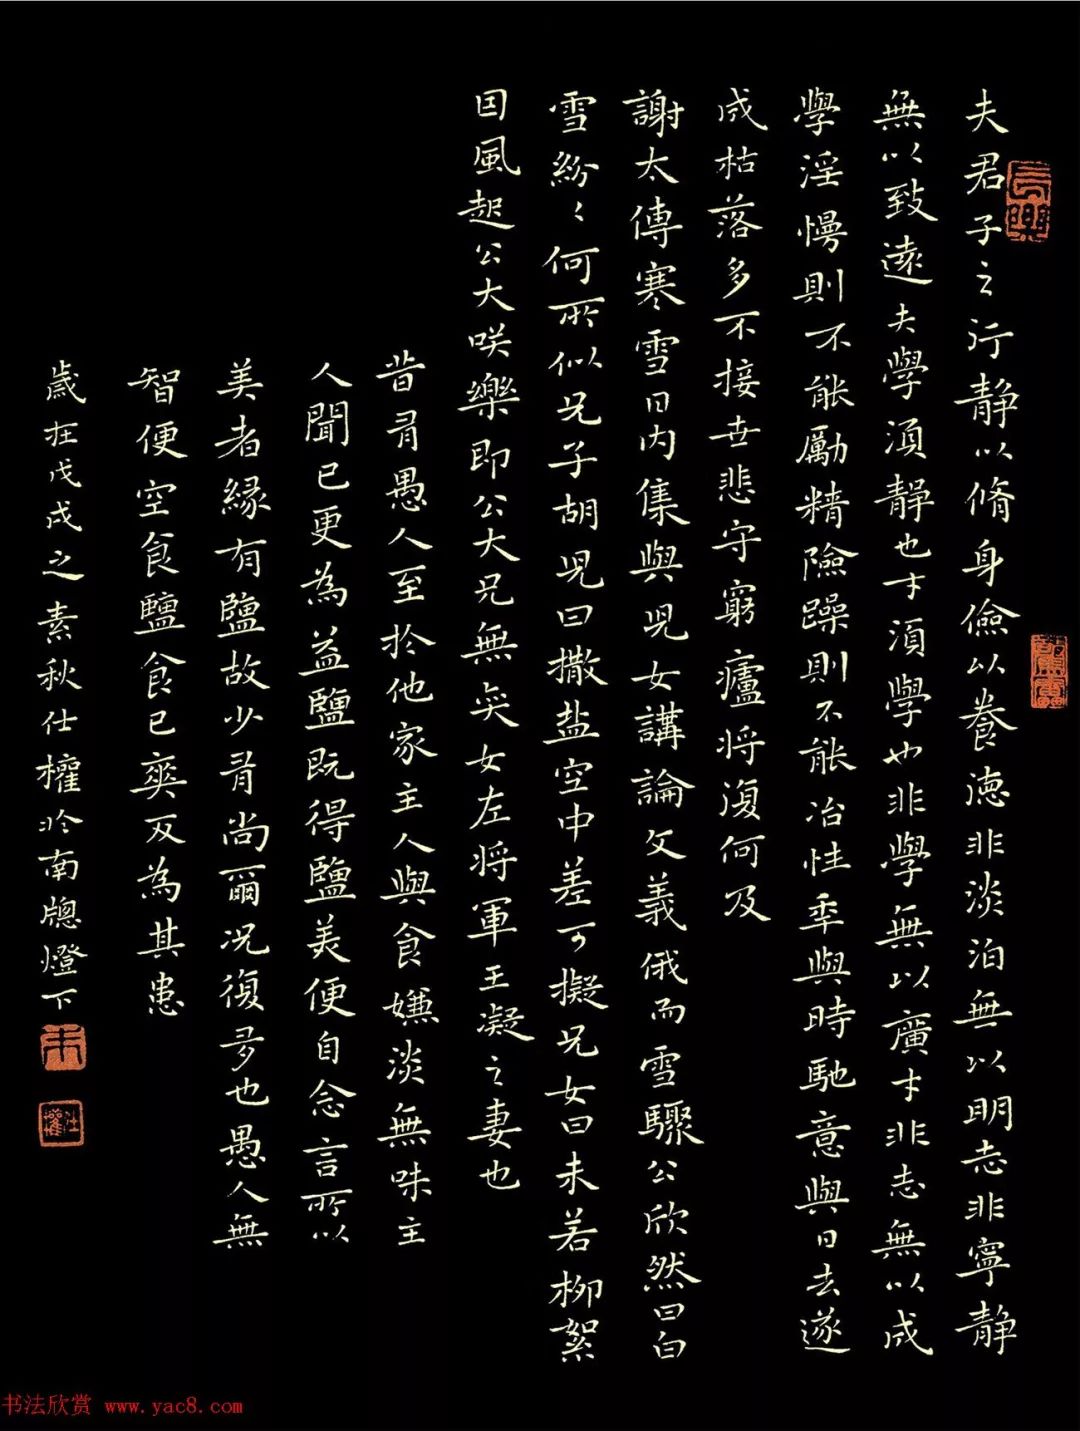 夫君子之行靜以脩身儉以養德非淡泊無以明志非寧靜
無以致遠夫學須靜也才須學也非學無以廣才非志無以成
學淫慢則不能勵精險躁則不能冶性年與時馳意與日去遂
成枯落多不接世悲守窮廬將復何及
謝太傅寒雪日內集與兒女講論文義俄而雪驟公欣然曰白
雪紛〻何所似兄子胡兒曰撒盐空中差可擬兄女曰未若柳絮
因風起公大咲樂即公大兄無奕女左将軍王凝之妻也
昔有愚人至於他家主人與食嫌淡無味主
人聞已更為益鹽既得鹽美便自念言所以
美者緣有鹽故少有尚爾況復多也愚人無
智便空食鹽食已爽反為其患
歲在戊戌之素秋仕權於南牕燈下
仕權
书法欣赏 www.yac8.com